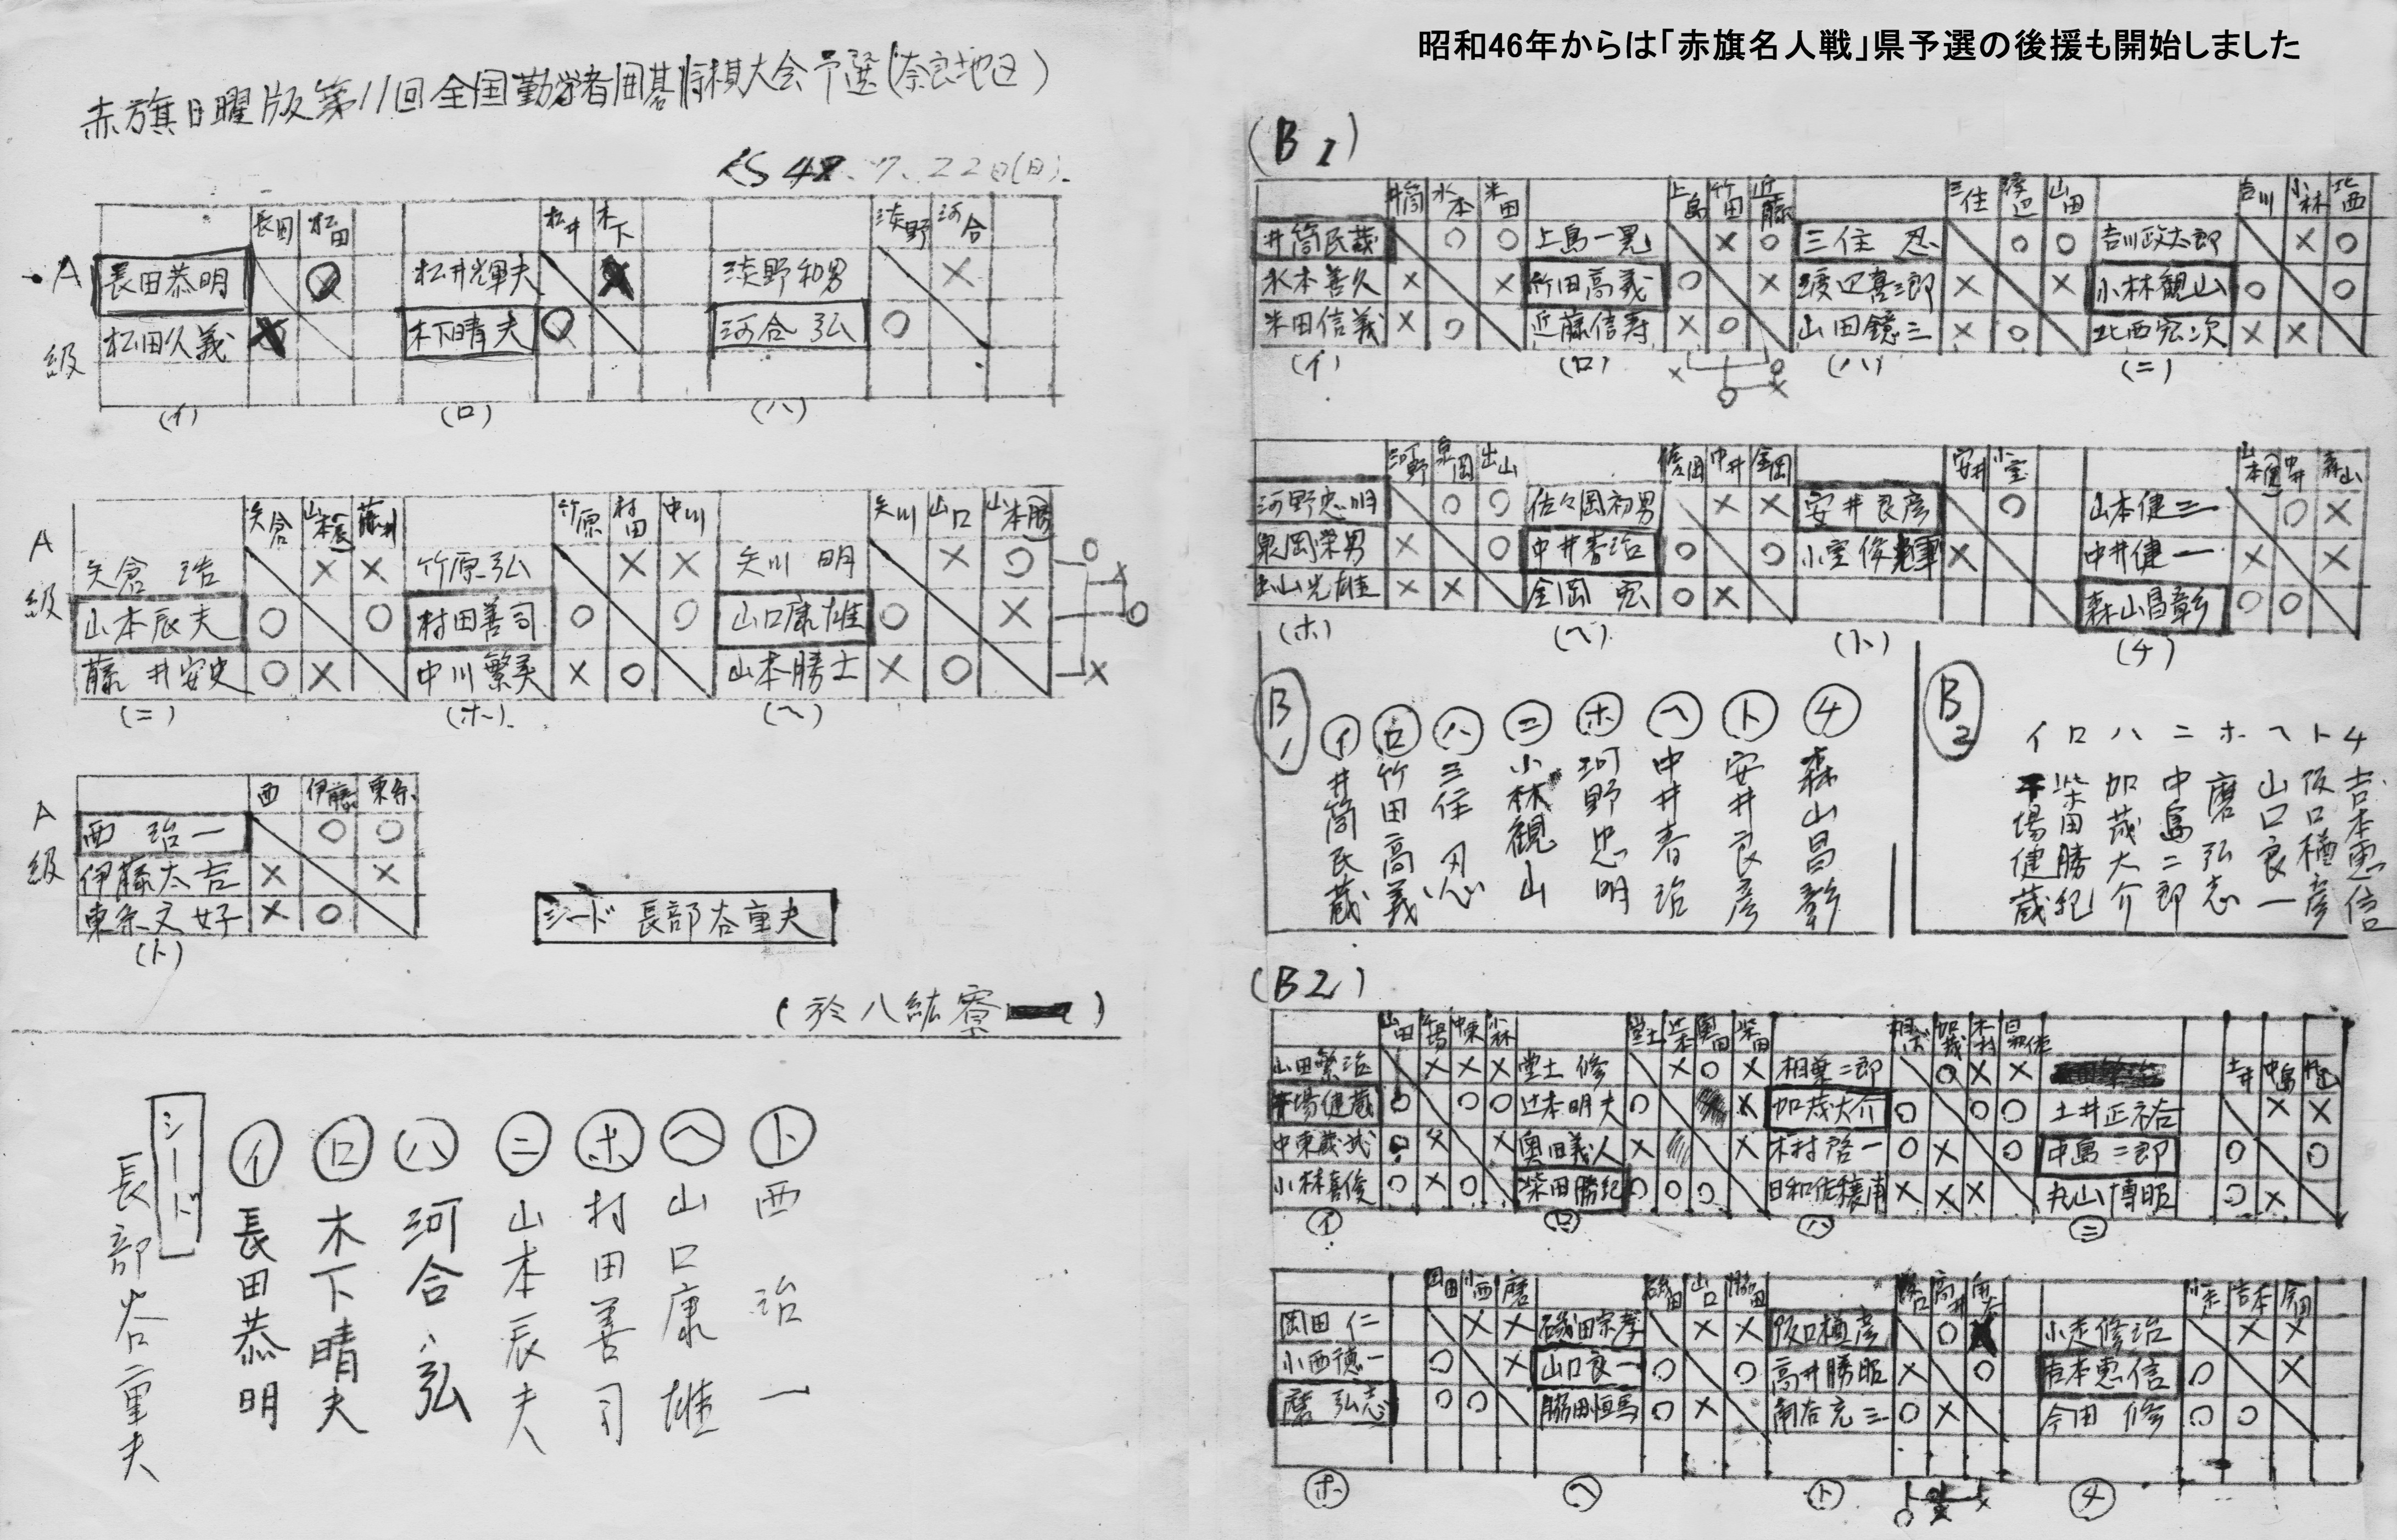 昭和46年からは「赤旗名人戦」県予選の後援も開始しました
赤旗日曜版第11回全国勤労者囲碁将棋大会予選(奈良地区)
7.22日(日).
A級
長田 松田 松井 木下 淡野 河合
長田恭明 × 松井輝夫 淡野和男 ×
松田久義 × 木下晴夫 ○ 河合弘 ○
(イ) (ロ) (ハ)
A級
矢倉 山本(辰) 藤井 竹原 村田 中川 矢川 山口 山本(勝)
矢倉 治 × × 竹原弘 × × 矢川 明 × ○
山本辰夫 ○ ○ 村田善司 ○ ○ 山口康雄 ○ ×
藤井安史 ○ × 中川繁美 × ○ 山本勝士 × ○
(ニ) (ホ) (ヘ)
A級
西 伊藤 東条
西 治一 ○ ○
伊藤太吉 × ×
東条文好 × ○
(ト)
シード 長部谷重夫
(於八紘寮)
シード 長部谷重夫
イ 長田恭明
ロ 木下晴夫
ハ 河合弘
ニ 山本辰夫
ホ 村田善司
ヘ 山口康雄
ト 西治一
(B1)
井筒 水本 米田 上島 竹田 近藤 三住 渡辺 山田 吉川 小林 北西
井筒民蔵 ○ ○ 上島一晃 × ○ 三住 忍 ○ ○ 吉川政太郎 × ○
水本善久 × × 竹田高義 ○ × 渡辺喜三郎 × × 小林観山 ○ ○
米田信義 × ○ 近藤信寿 × ○ 山田鏡三 × ○ 北西宏次 × ×
(イ) (ロ) (ハ) (ニ)
河野 泉岡 出山 佐々岡 中井 金岡 安井 小室 山本(健) 中井 森山
河野忠明 ○ ○ 佐々岡初男 × × 安井良彦 ○ 山本健三 ○ ×
泉岡栄男 × ○ 中井春治 ○ ○ 小室俊輝 × 中井健一 × ×
出山光雄 × × 金岡 宏 ○ × 森山昌彰 ○ ○
(ホ) (ヘ) (ト) (チ)
B1
イ 井筒民蔵
ロ 竹田高義
ハ 三住忍
ニ 小林観山
ホ 河野忠明
ヘ 中井春治
ト 安井良彦
チ 森山昌彰
B2
イ 場健蔵
ロ 柴田勝紀
ハ 加茂大介
ニ 中島二郎
ホ 磨弘志
ヘ 山口良一
ト 阪口楢彦
チ 吉本恵信
(B2)
山田 中東 小林 堂土 辻本 奥田 柴田 相葉 加茂 木村 日和佐 土井 中島 丸山
山田繁治 × × × 堂土 修 × ○ × 相葉二郎 ○ × ×
場健蔵 ○ ○ ○ 辻本明夫 ○ × 加茂大介 ○ ○ ○ 土井正裕 × ×
中東蔵武 × × 奥田義人 × × 木村啓一 ○ × ○ 中島二郎 ○ ○
小林喜俊 ○ × ○ 柴田勝紀 ○ ○ ○ 日和佐穣甫 × × × 丸山博昭 ○ ×
イ ロ ハ ニ
岡田 小西 磨 磯田 山口 脇田 阪口 高井 小走 吉本 今田
岡田 仁 × × 磯田宗孝 × × 阪口楢彦 ○ 小走修治 × ×
小西徳一 ○ × 山口良一 ○ ○ 高井勝昭 × ○ 吉本恵信 ○ ×
磨 弘志 ○ ○ 脇田恒馬 ○ × 南右充三 ○ × 今田 修 ○ ○
ホ ヘ ト チ